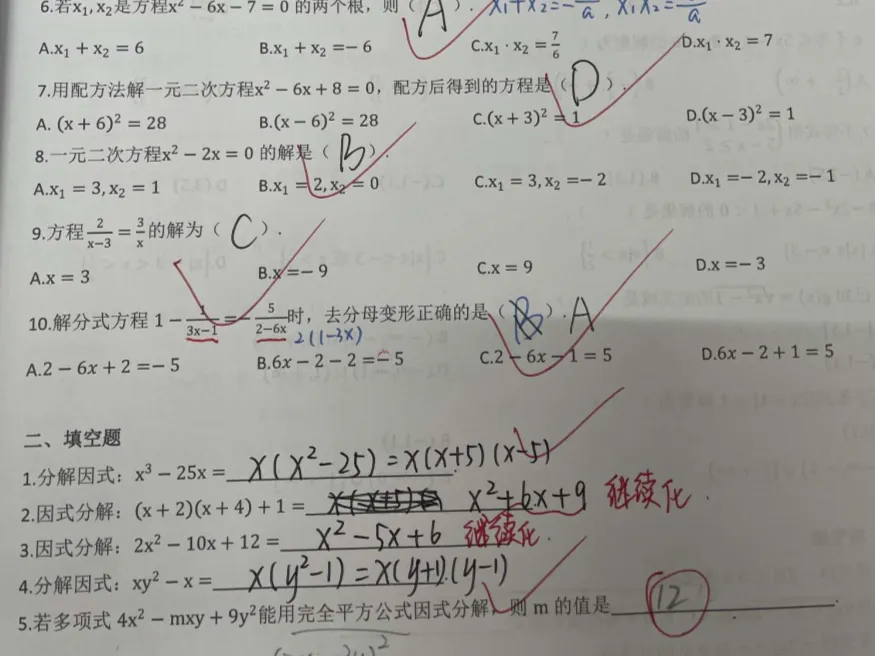 6.若x₁, x₂是方程x² − 6x − 7 = 0 的两个根，则（ A ）. x₁+x₂=−—/a, x₁x₂=—/a
A.x₁ + x₂ = 6 B.x₁ + x₂ =− 6 C.x₁ · x₂ = 7/6 D.x₁ · x₂ = 7
7.用配方法解一元二次方程x² − 6x + 8 = 0，配方后得到的方程是（ D ）.
A. (x + 6)² = 28 B.(x − 6)² = 28 C.(x + 3)² = 1 D.(x − 3)² = 1
8.一元二次方程x² − 2x = 0 的解是（ B ）.
A.x₁ = 3, x₂ = 1 B.x₁ = 2, x₂ = 0 C.x₁ = 3, x₂ =− 2 D.x₁ =− 2, x₂ =− 1
9.方程 2/(x−3) = 3/x 的解为（ C ）.
A.x = 3 B.x =− 9 C.x = 9 D.x =− 3
10.解分式方程 1 − 1/(3x−1) =− 5/(2−6x) 时，去分母变形正确的是（ B ）. A
2(1-3x)
A.2 − 6x + 2 =− 5 B.6x − 2 − 2 =− 5 C.2 − 6x − 1 = 5 D.6x − 2 + 1 = 5
二、填空题
1.分解因式：x³ − 25x = x(x²-25)=x(x+5)(x-5)
2.因式分解：(x + 2)(x + 4) + 1 = x²+6x+9 继续化.
3.因式分解：2x² − 10x + 12 = x²-5x+6 继续化.
4.分解因式：xy² − x = x(y²-1)=x(y+1)(y-1)
5.若多项式 4x² − mxy + 9y²能用完全平方公式因式分解，则 m 的值是 12